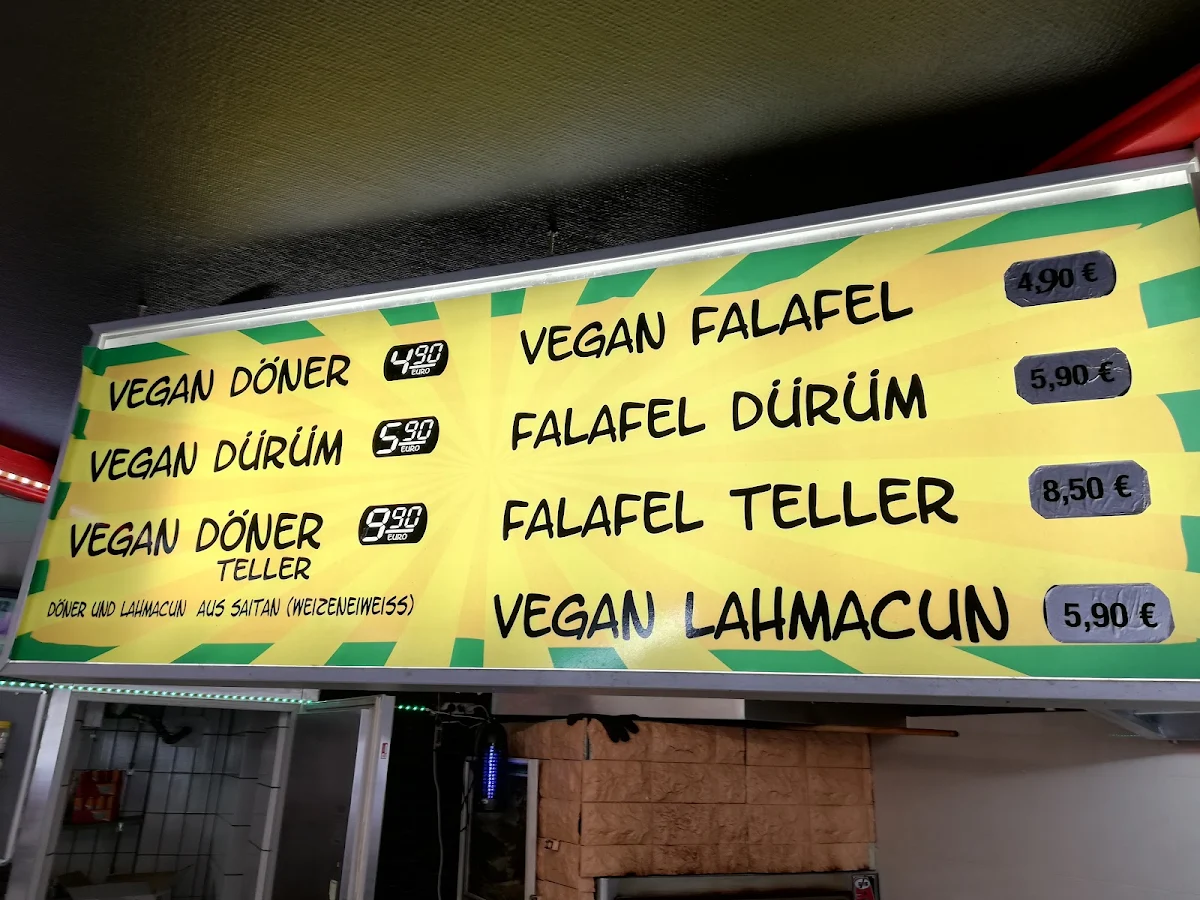 VEGAN DÖNER 4,90 EURO
VEGAN DÜRÜM 5,90 EURO
VEGAN DÖNER 9,90 EURO
TELLER
DÖNER UND LAHMACUN AUS SAITAN (WEIZENEIWEISS)
VEGAN FALAFEL 4,90 €
FALAFEL DÜRÜM 5,90 €
FALAFEL TELLER 8,50 €
VEGAN LAHMACUN 5,90 €